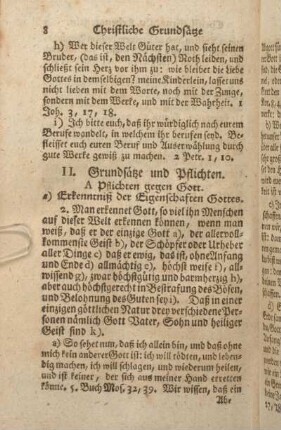 8 Christliche Grundsätze
h) Wer dieser Welt Güter hat, und sieht seinen
Bruder, (das ist, den Nächsten) Noth leiden, und
schließt sein Herz vor ihm zu: wie bleibet die Liebe
Gottes in demselbigen? meine Kinderlein, lasset uns
nicht lieben mit dem Worte, noch mit der Zunge,
sondern mit dem Werke, und mit der Wahrheit. 1
Joh. 3, 17, 18.
i) Ich bitte euch, daß ihr würdiglich nach eurem
Berufe wandelt, in welchem ihr berufen seyd. Be-
fleisset euch euren Beruf und Auserwählung durch
gute Werke gewiß zu machen. 2 Petr. 1, 10.
II. Grundsätze und Pflichten.
A Pflichten gegen Gott.
a) Erkenntniß der Eigenschaften Gottes.
2. Man erkennet Gott, so viel ihn Menschen
auf dieser Welt erkennen können, wenn man
weiß, daß er der einzige Gott a), der allervoll-
kommenste Geist b), der Schöpfer oder Urheber
aller Dinge c) daß er ewig, das ist, ohne Anfang
und Ende d) allmächtig e), höchst weise f), all-
wissend g), zwar höchstgütig und barmherzig h),
aber auch höchstgerecht in Bestrafung des Bösen,
und Belohnung des Guten sey i). Daß in einer
einzigen göttlichen Natur drey verschiedene Perso-
nen nämlich Gott Vater, Sohn und heiliger
Geist sind k).
a) So sehet nun, daß ich allein bin, und daß ohne
mich kein anderer Gott ist: ich will tödten, und leben-
dig machen, ich will schlagen, und wiederum heilen,
und ist keiner, der sich aus meiner Hand erretten
könne. 5. Buch Mos. 32, 39. Wir wissen, daß ein
Ab-